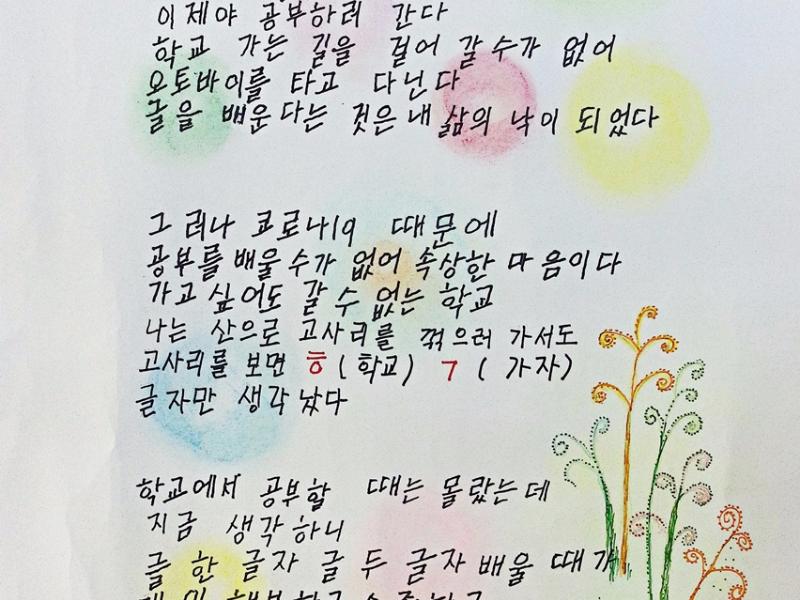 이제야 공부하러 간다
학교 가는 길을 걸어 갈 수가 없어
오토바이를 타고 다닌다
글을 배운다는 것은 내 삶의 낙이 되었다
그러나 코로나19 때문에
공부를 배울 수가 없어 속상한 마음이다
가고 싶어도 갈 수 없는 학교
나는 산으로 고사리를 꺾으러 가서도
고사리를 보면 ㅎ (학교) ㄱ ( 가자)
글자만 생각났다
학교에서 공부할 때는 몰랐는데
지금 생각하니
글 한 글자 글 두 글자 배울 때가